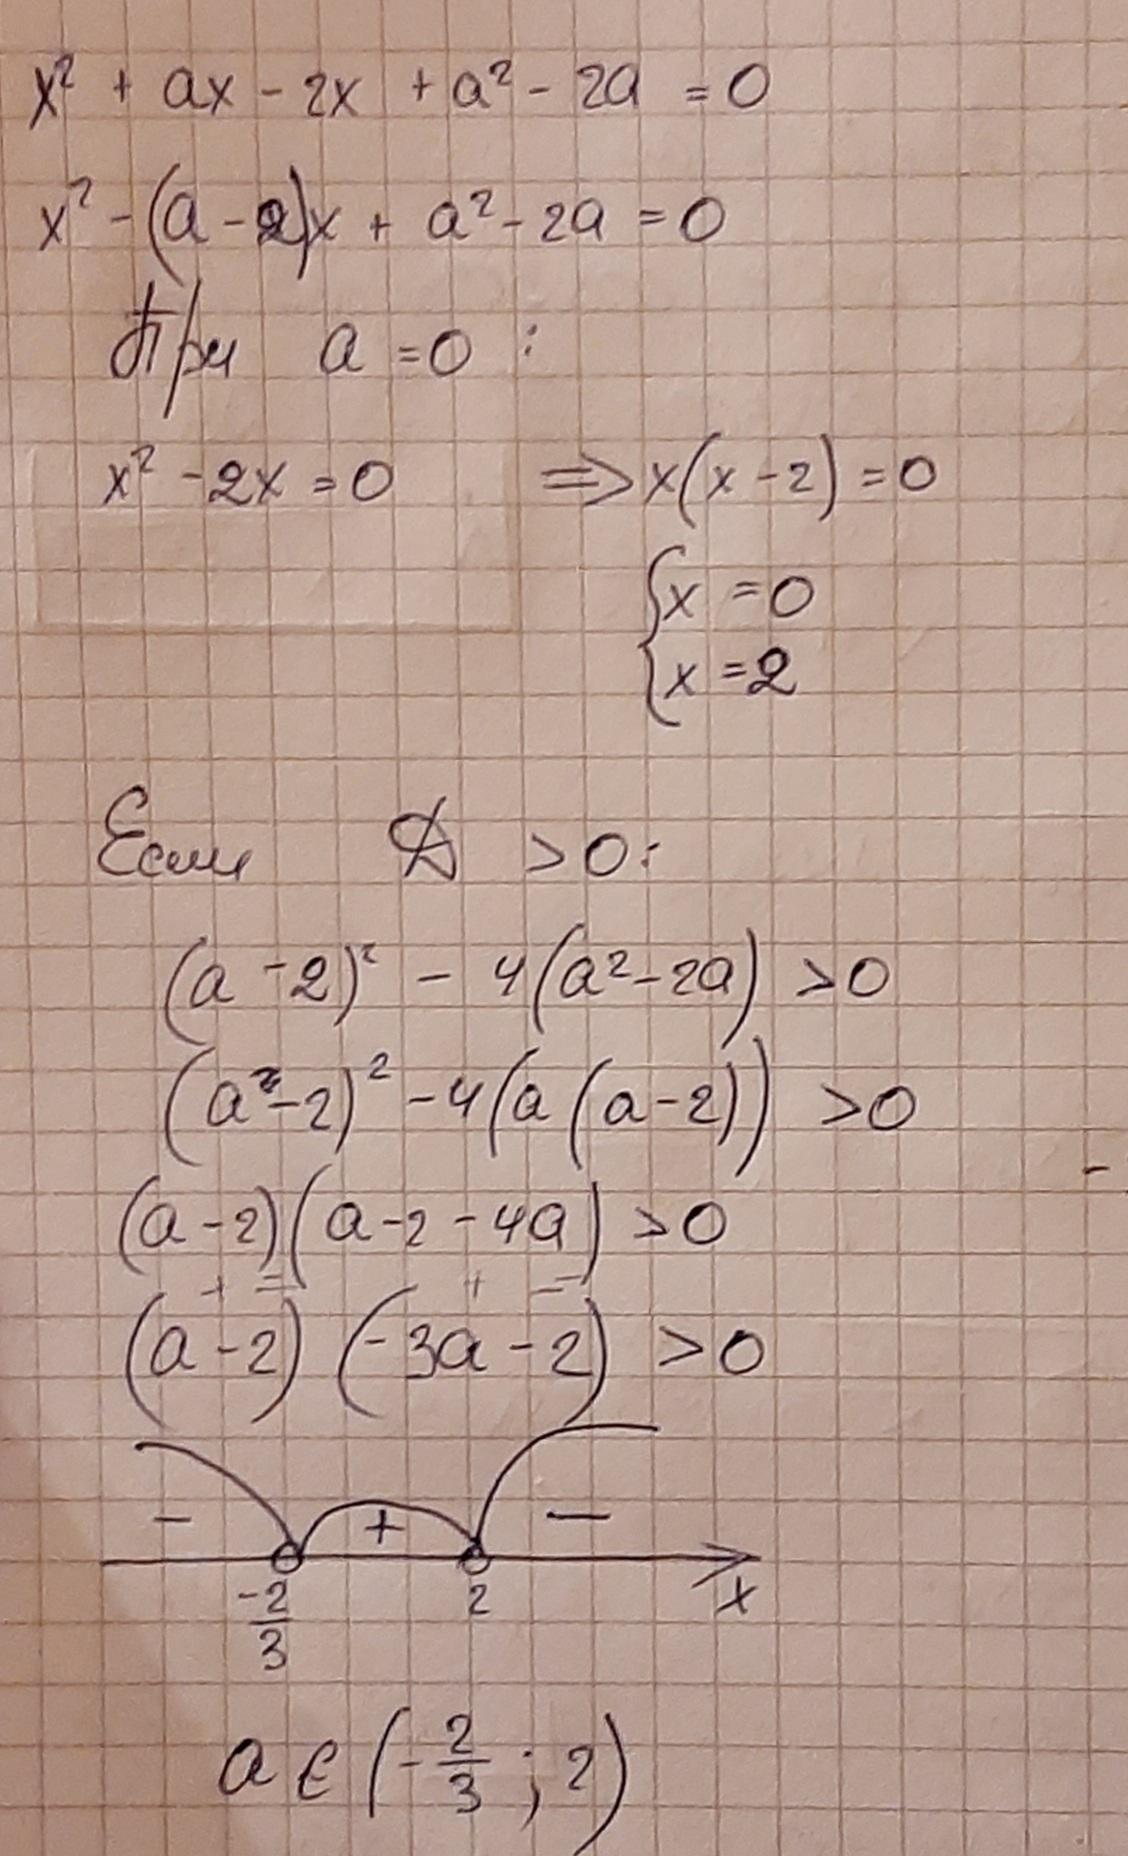 x² + ax - 2x + a² - 2a = 0
x² - (a - 2)x + a² - 2a = 0
При a = 0 :
x² - 2x = 0 ⇒ x(x - 2) = 0
{x = 0
x = 2
Если Д > 0:
(a - 2)² - 4(a² - 2a) > 0
(a - 2)² - 4(a(a - 2)) > 0
(a - 2)(a - 2 - 4a) > 0
+ = + =
(a - 2) (-3a - 2) > 0
- + -
-2/3 2 x
a ∈ (-2/3 ; 2)